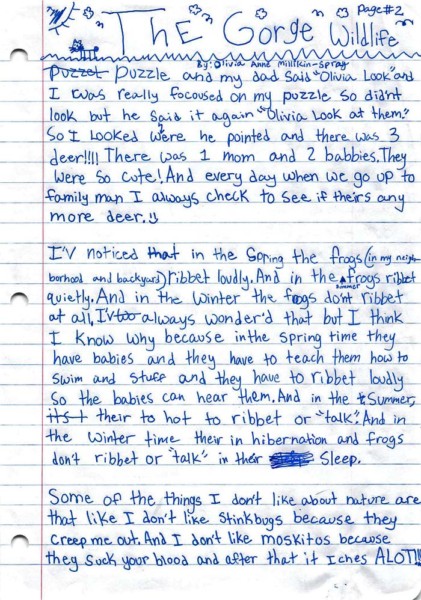 Page #2
The Gorge Wildlife
By: Olivia Anne Millikin-Spray
Puzzel Puzzle and my dad said "Olivia Look" and
I was really focoused on my puzzle so didnt
look but he said it again "Olivia Look at them."
So I Looked were he pointed and there was 3
deer!!!! There was 1 mom and 2 babbies. They
were so cute! And every day when we go up to
family man I always check to see if theirs any
more deer.
I'V noticed that in the spring the frogs (in my neigh
borhood and backyard) ribbet loudly. And in the summer frogs ribbet
quietly. And in the winter the frogs do'nt ribbet
at all, I'V too always wonder'd that but I think
I know why because in the spring time they
have babies and they have to teach them how to
swim and stuff and they have to ribbet loudly
so the babies can hear them. And in the Summer,
it's t their to hot to ribbet or "talk". And in
the winter time their in hibernation and frogs
don't ribbet or "talk" in their Sleep.
Some of the things I don't like about nature are
that like I don't like stinkbugs because they
creep me out. And I don't like moskitos because
they suck your blood and after that it Iches ALOT!!!